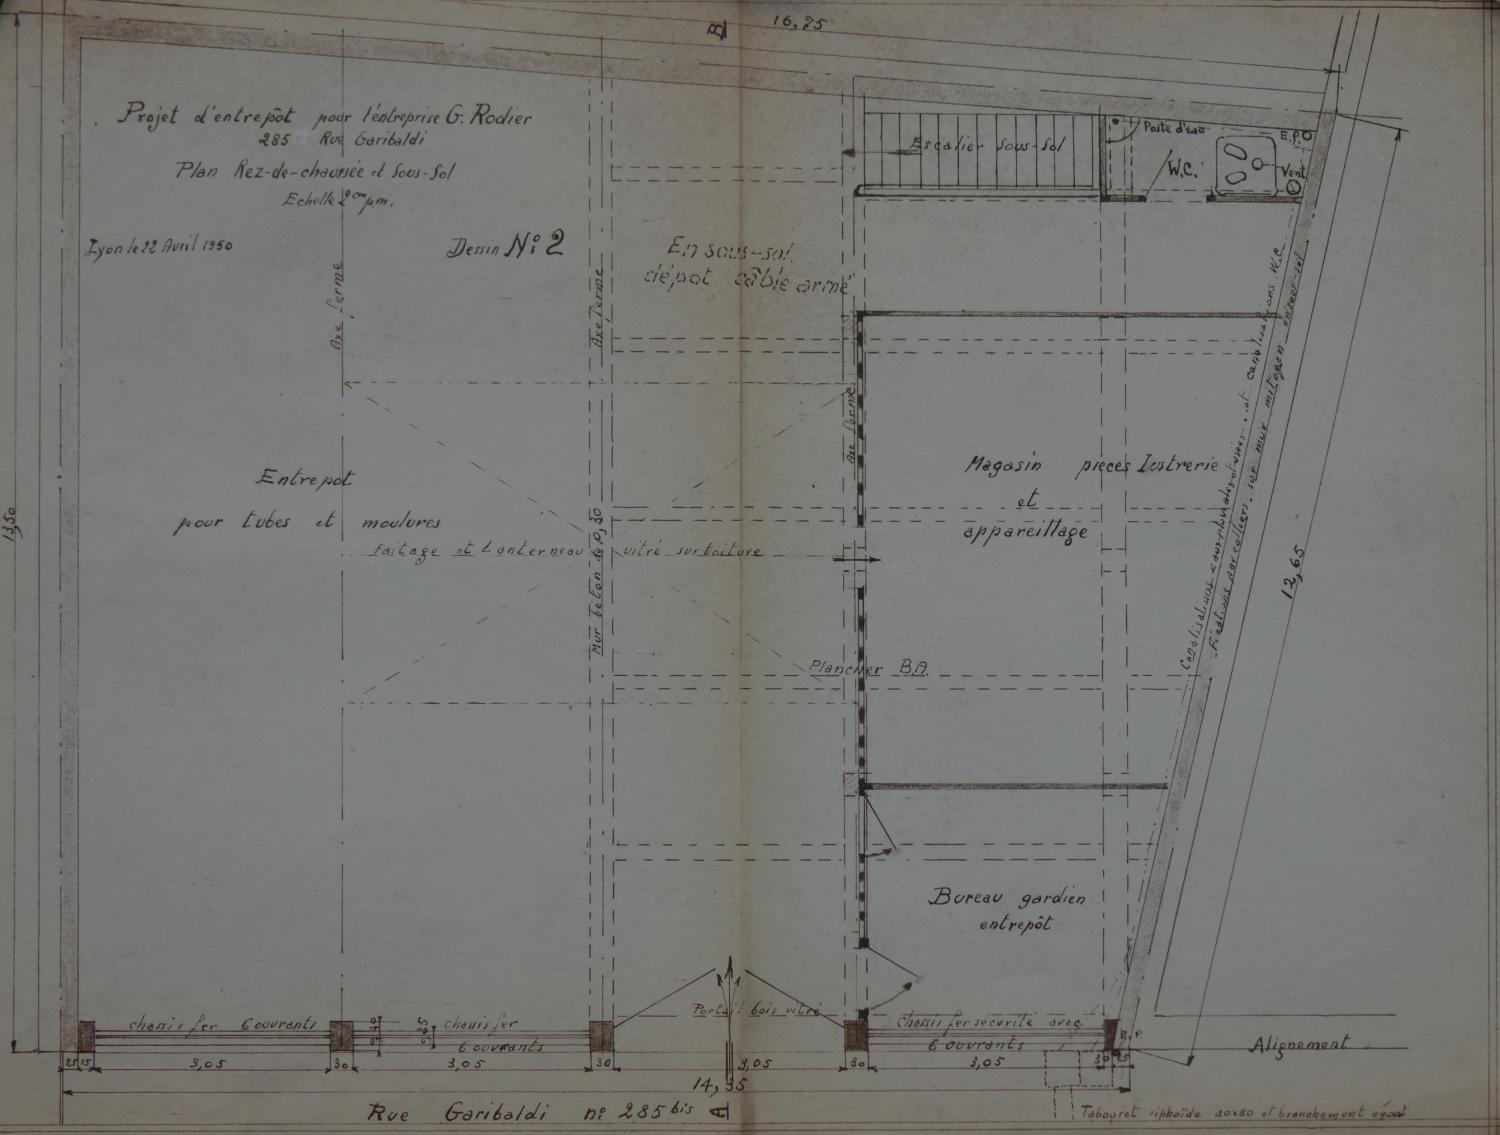 16,75
B
Projet d'entrepôt pour l'entreprise G. Rodier
285 Rue Garibaldi
Plan Rez-de-chaussée et Sous-Sol
Echelle 2cm p.m.
Lyon le 22 Avril 1950
Dessin N° 2
En sous-sol
dépot câble armé
Escalier Sous-Sol
Poste d'eau
W.C.
E.P.
Vent
Axe ferme
Axe ferme
Axe ferme
13,50
Entrepot
pour tubes et moulures
Faitage et Lanterneau vitré sur toiture
Mur béton de 0,30
Magasin pieces lustrerie
et
appareillage
Canalisations eaux pluviales et usées et canalisations W.C.
Fixations par colliers sur mur mitoyen en sous-sol
12,65
Plancher B.A.
Bureau gardien
entrepôt
Portail bois vitré
chassis fer 6 ouvrants
chassis fer
6 ouvrants
chassis fer securité avec
6 ouvrants
E.P.
Alignement
25 15 3,05 30 3,05 30 3,05 30 3,05 30 25
14,35
Rue Garibaldi n° 285 bis
A
Tabouret siphoïde 40x80 et branchement égout